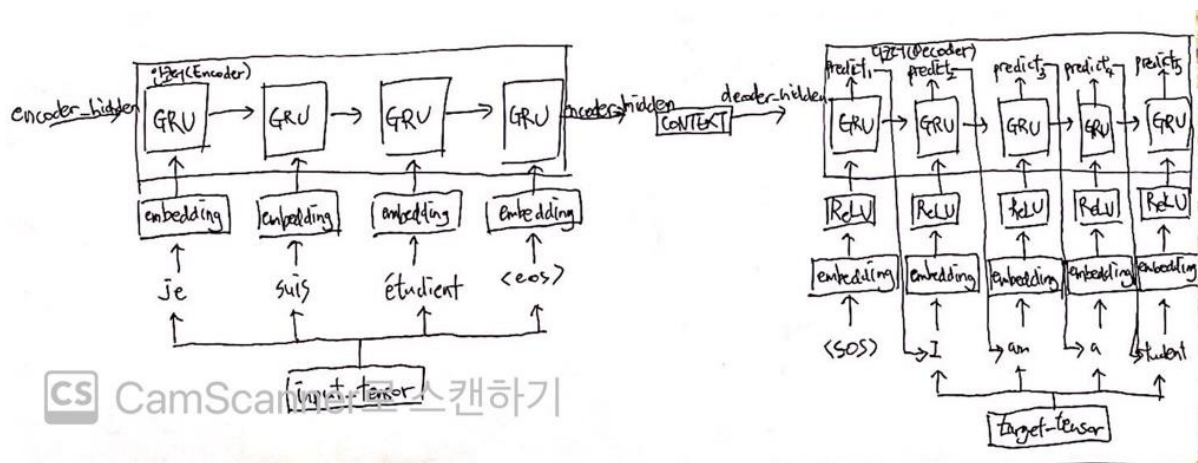 인코더(Encoder)
encoder_hidden
GRU
GRU
GRU
GRU
encoder_hidden
embedding
embedding
embedding
embedding
je
suis
étudient
<eos>
input_tensor
CONTEXT
decoder_hidden
디코더(Decoder)
predict1
predict2
predict3
predict4
predict5
GRU
GRU
GRU
GRU
GRU
ReLU
ReLU
ReLU
ReLU
ReLU
embedding
embedding
embedding
embedding
embedding
<SOS>
I
am
a
student
target-tensor
CS CamScanner로 스캔하기